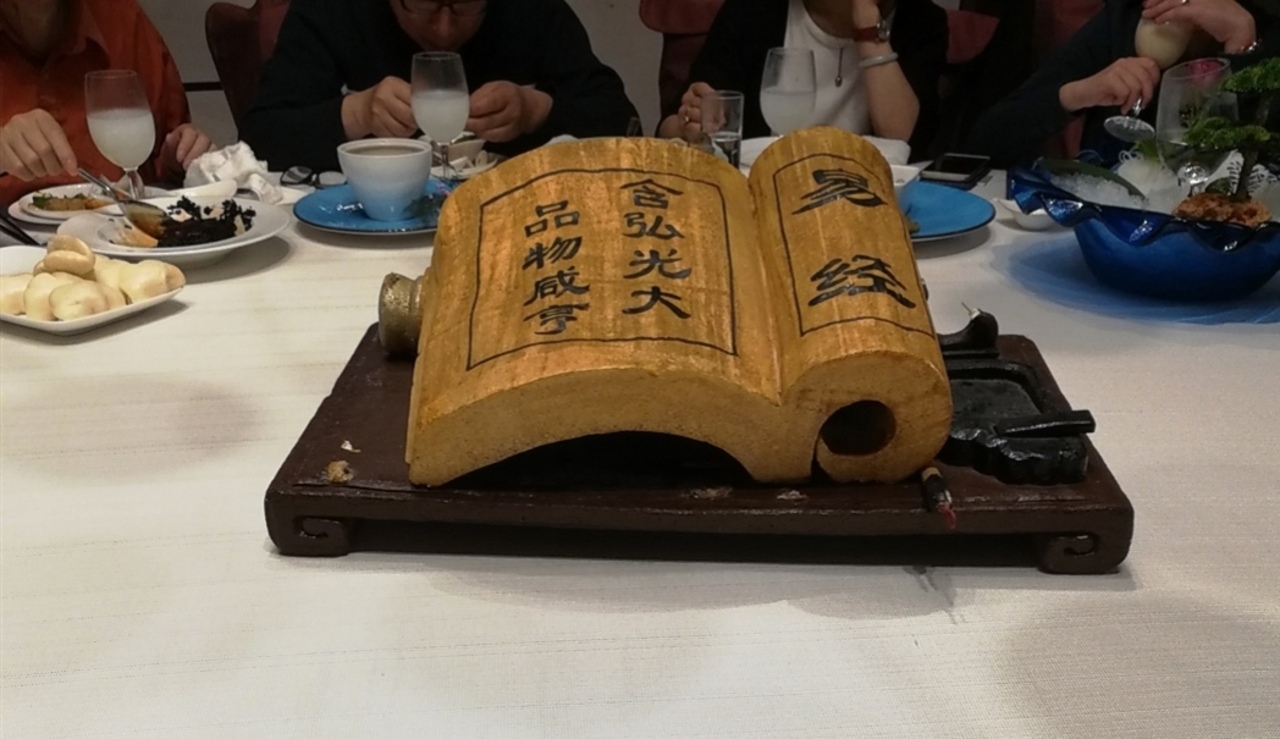 易经
含弘光大
品物咸亨